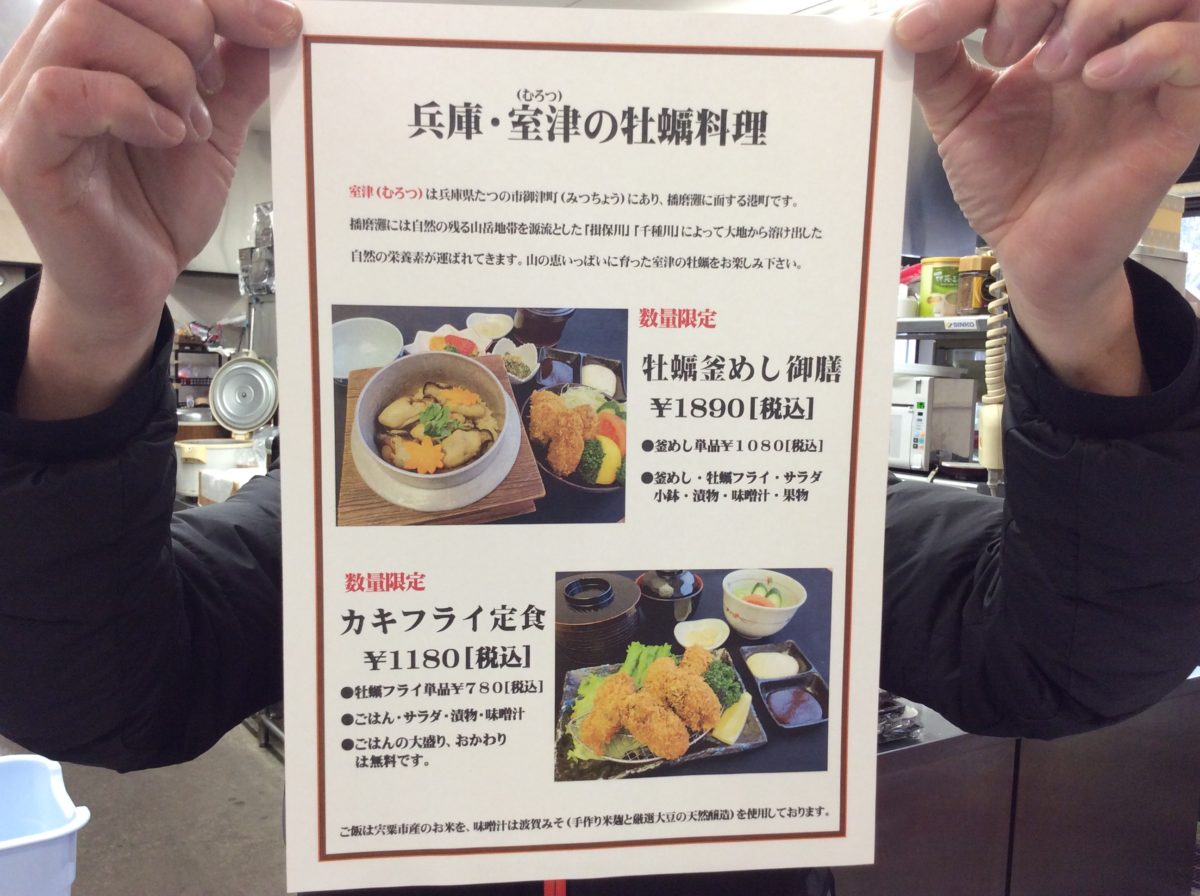 (むろつ)
兵庫・室津の牡蠣料理
室津(むろつ)は兵庫県たつの市御津町(みつちょう)にあり、播磨灘に面する港町です。
播磨灘には自然の残る山岳地帯を源流とした「揖保川」「千種川」によって大地から溶け出した
自然の栄養素が運ばれてきます。山の恵いっぱいに育った室津の牡蠣をお楽しみ下さい。
数量限定
牡蠣釜めし御膳
¥1890[税込]
●釜めし単品¥1080[税込]
●釜めし・牡蠣フライ・サラダ
小鉢・漬物・味噌汁・果物
数量限定
カキフライ定食
¥1180[税込]
●牡蠣フライ単品¥780[税込]
●ごはん・サラダ・漬物・味噌汁
●ごはんの大盛り、おかわり
は無料です。
ご飯は宍粟市産のお米を、味噌汁は波賀みそ(手作り米麹と厳選大豆の天然醸造)を使用しております。
SINKO